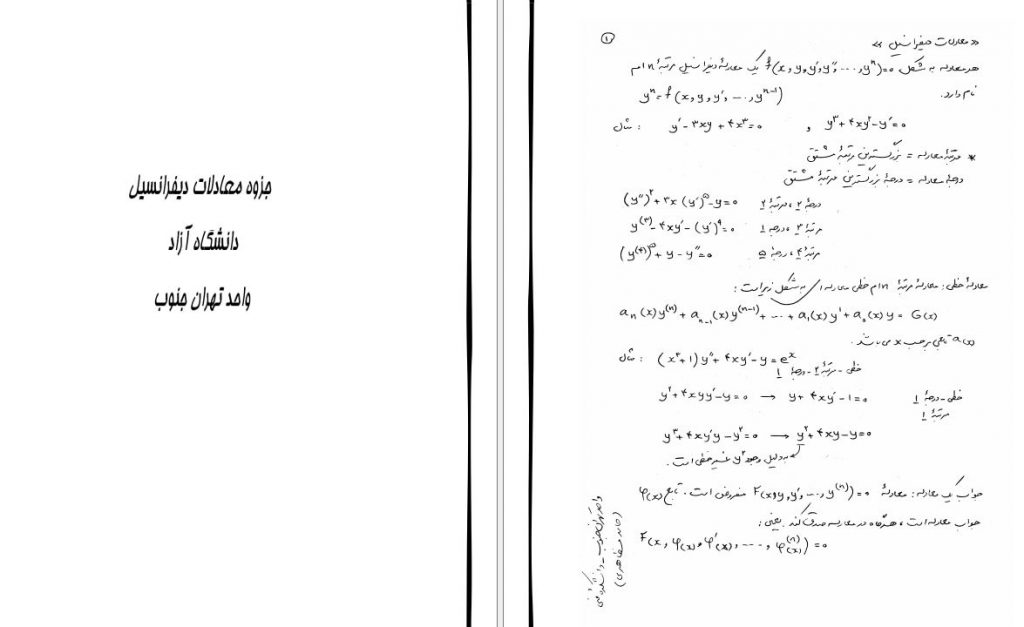 جزوه معادلات دیفرانسیل
دانشگاه آزاد
واحد تهران جنوب
۱
«معادلات دیفرانسیل»
هر معادله به شکل f(x, y, y', y'', ..., yⁿ)=۰ یک معادلهٔ دیفرانسیل مرتبهٔ n ام
نام دارد.
yⁿ = f(x, y, y', ..., yⁿ⁻¹)
مثال : y' - ۳xy + ۴x³ = ۰ , y³ + ۴xy² - y' = ۰
* مرتبهٔ معادله = بزرگترین مرتبهٔ مشتق
درجهٔ معادله = درجهٔ بزرگترین مرتبهٔ مشتق
(y'')² + ۳x (y')⁵ - y = ۰ درجهٔ ۲ ، مرتبهٔ ۲
y⁽³⁾ - ۴xy' - (y')⁹ = ۰ مرتبهٔ ۳ ، درجهٔ ۱
(y⁽⁴⁾)⁵ + y - y'' = ۰ مرتبهٔ ۴ ، درجهٔ ۵
معادلهٔ خطی : معادلهٔ مرتبهٔ n ام خطی معادله ای به شکل زیر است :
aₙ(x)y⁽ⁿ⁾ + aₙ₋₁(x)y⁽ⁿ⁻¹⁾ + ... + a₁(x)y' + a₀(x)y = G(x)
a(x) تابعی برحسب x می باشد.
مثال : (x³+۱)y'' + ۴xy' - y = eˣ
خطی - مرتبهٔ ۲ - درجهٔ ۱
y² + ۴xyy' - y = ۰ → y + ۴xy' - ۱ = ۰ خطی - درجهٔ ۱
مرتبهٔ ۱
y³ + ۴xy'y - y² = ۰ → y² + ۴xy - y = ۰
که به دلیل وجود y² غیر خطی است.
جواب یک معادله : معادلهٔ F(x, y, y', ..., y⁽ⁿ⁾) = ۰ مفروض است. تابع φ(x)
جواب معادله است ، هرگاه در معادله صدق کند یعنی :
F(x, φ(x), φ'(x), ..., φ⁽ⁿ⁾(x)) = ۰
واحد تهران جنوب - دانشکده فنی